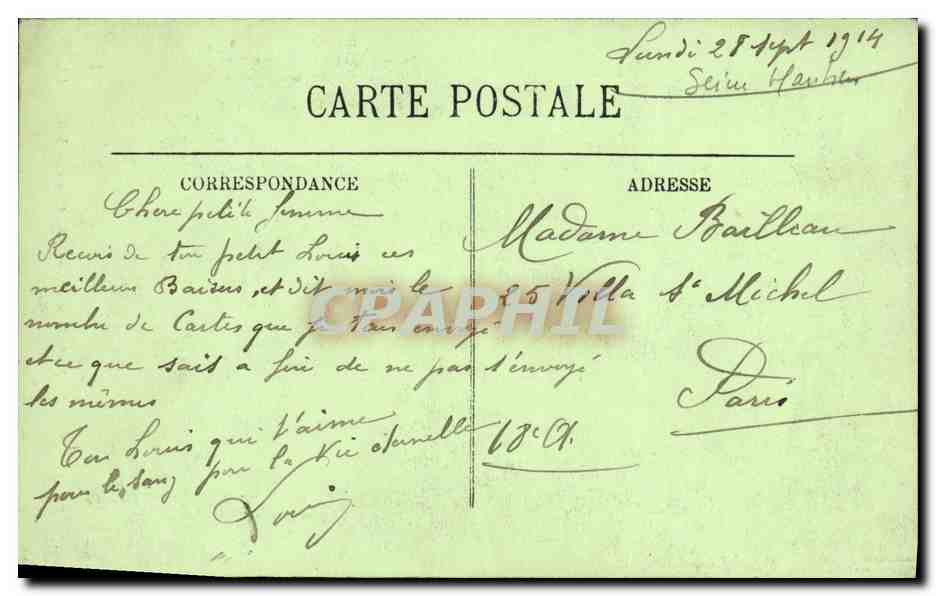 Lundi 28 sept 1914
CARTE POSTALE
CORRESPONDANCE
Chere petite femme
Recois de ton petit Louis ces
meilleurs Baisers, et dit mois le
nombre de Cartes que je tais envoyé
et ce que sais a fin de ne pas t'envoyé
les mêmes
Ton Louis qui t'aime
pour le sang pour la Vie éternelle
Louis
ADRESSE
Madame Bailleau
25 Villa St Michel
Paris
18e A.
CPAPHIL